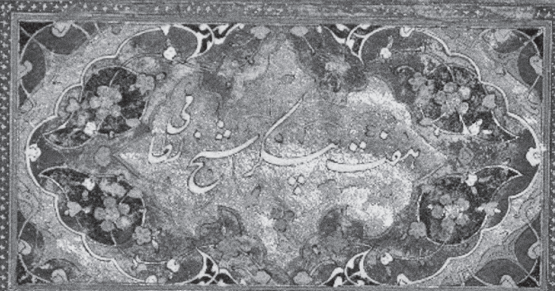 هفت پیکر شیخ نظامی